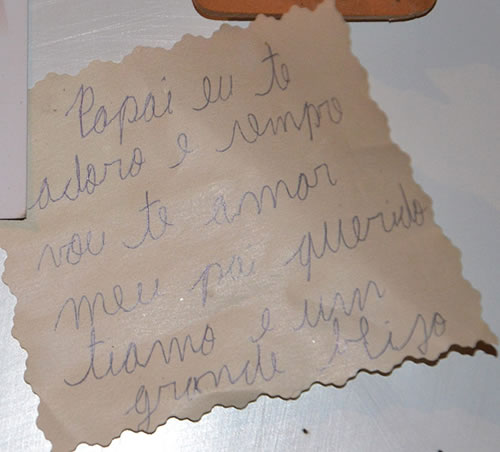 Papai eu te
adoro e sempre
vou te amar
meu pai querido
tiamo e um
grande beijo